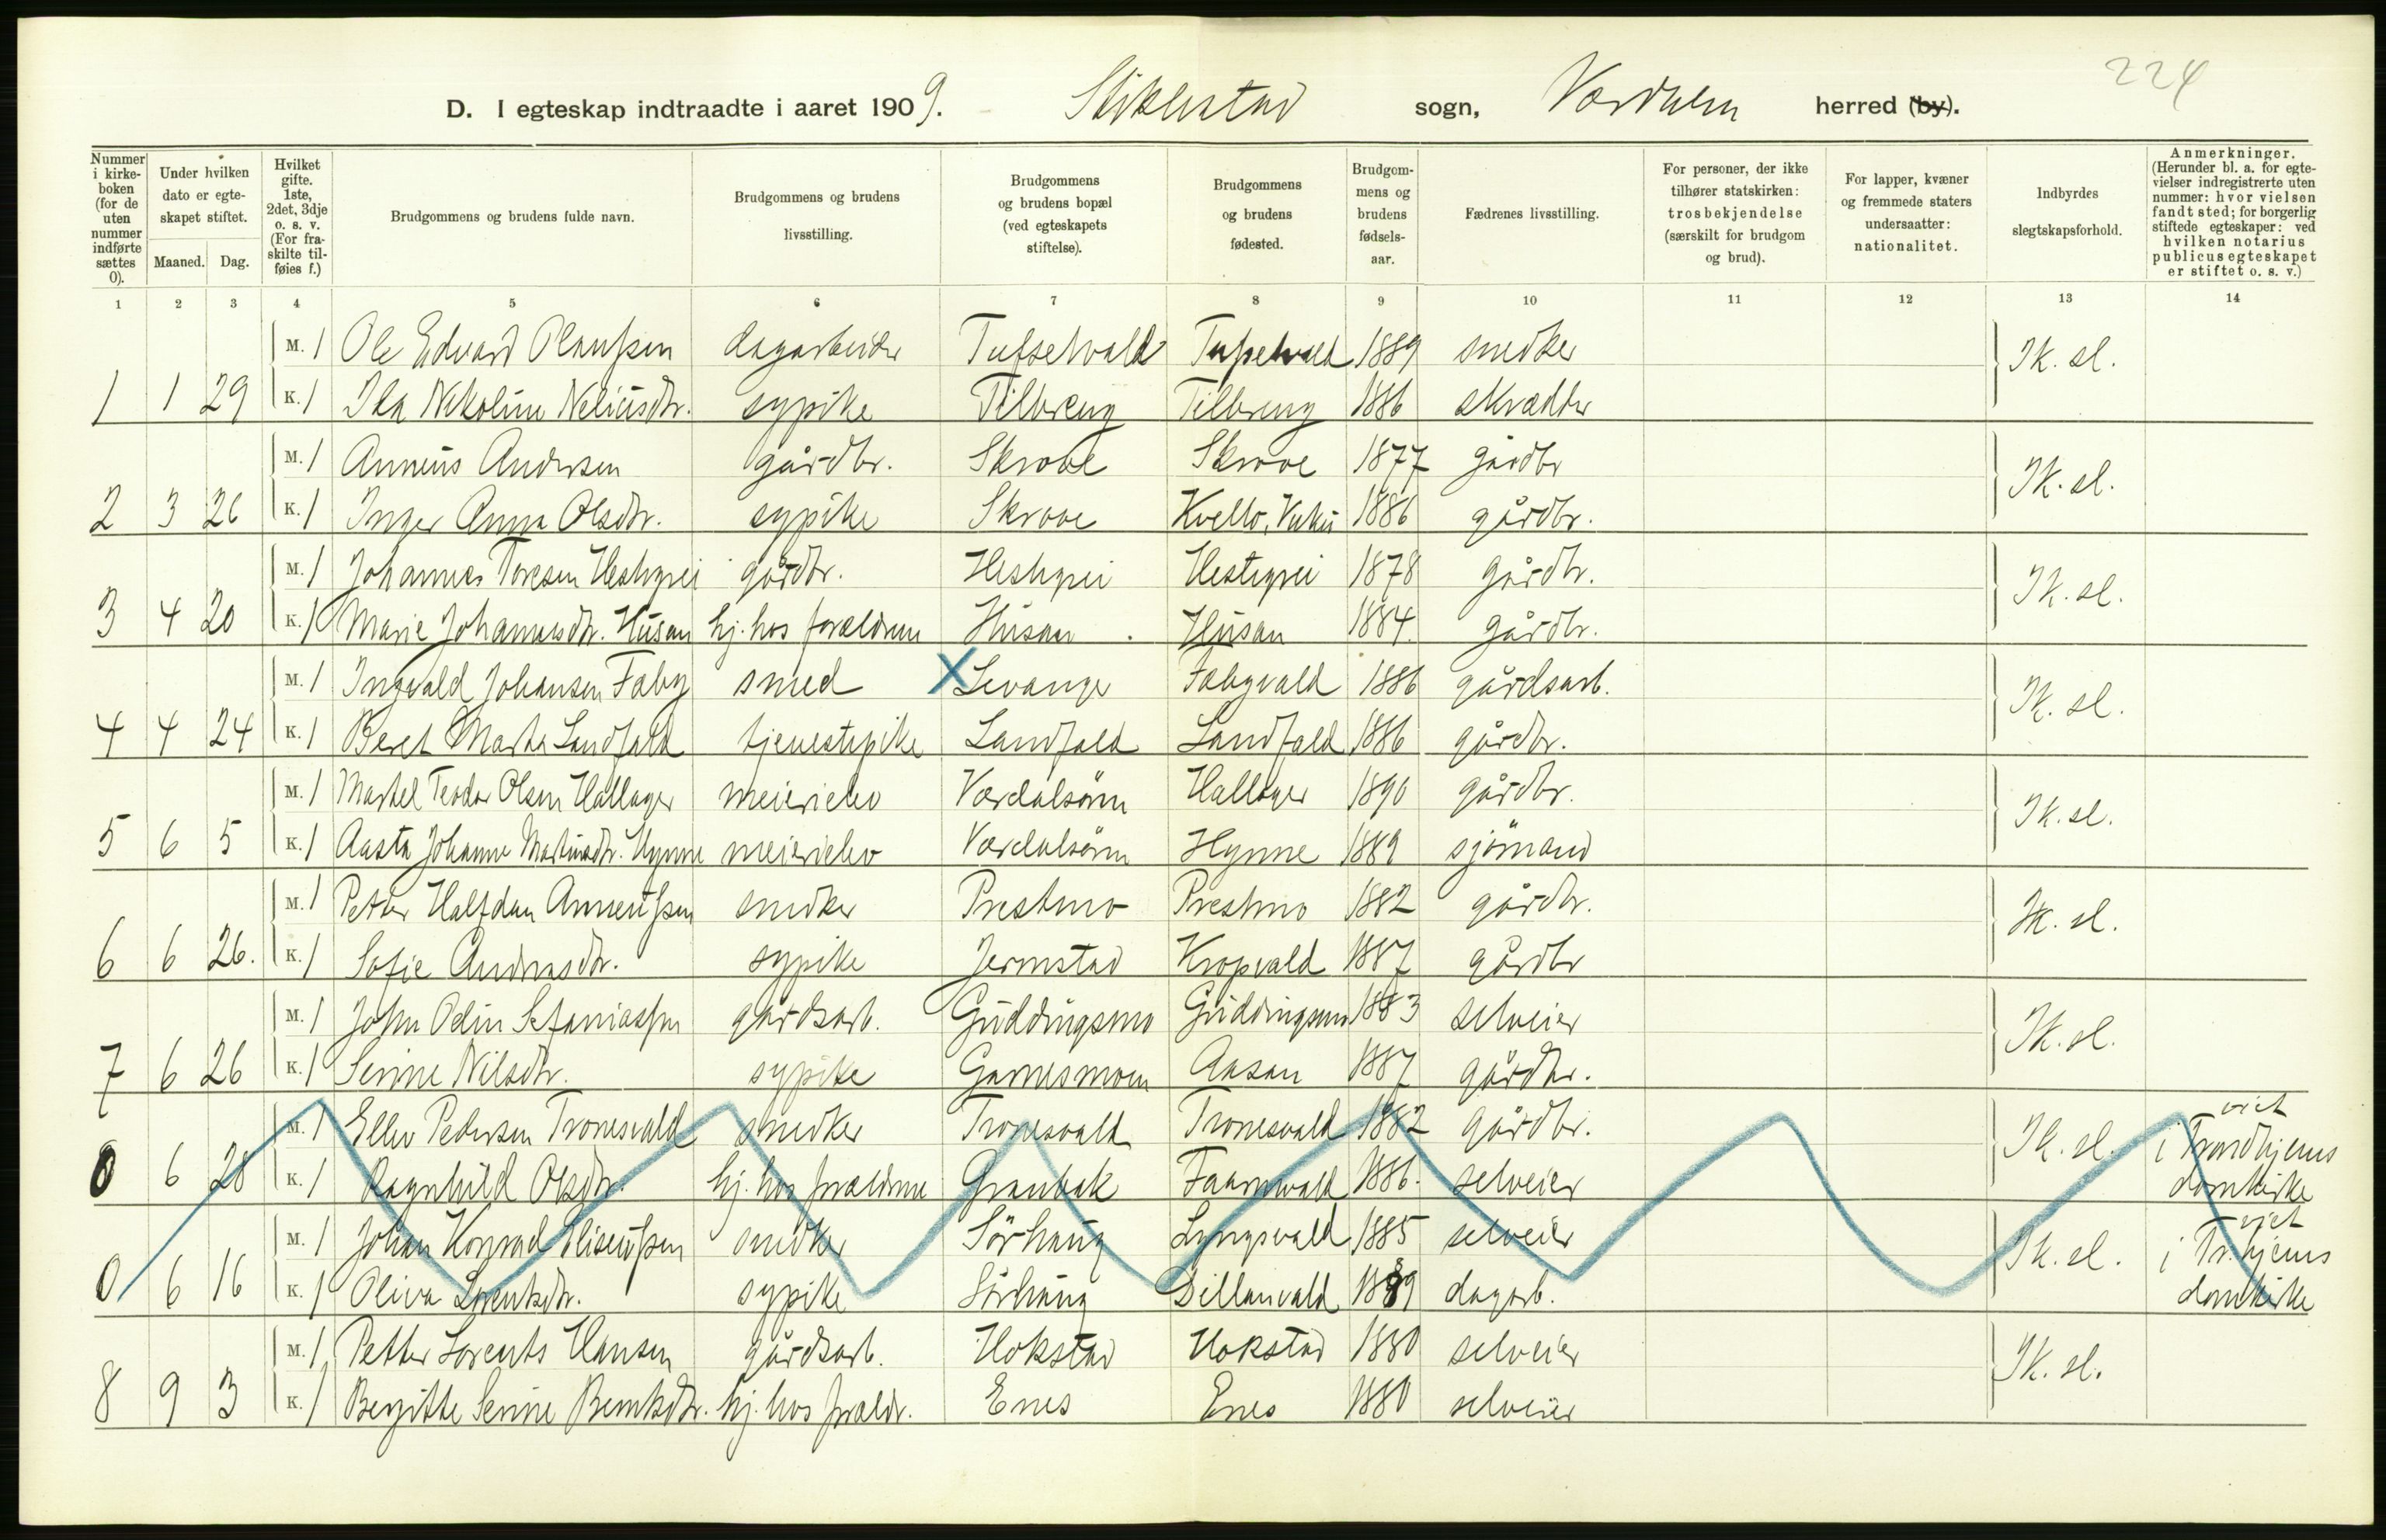 224
D. I egteskap indtraadte i aaret 1909. Stiklestad sogn, Værdalen herred (by).
Nummer i kirkeboken (for de uten nummer indførte sættes 0).
Under hvilken dato er egteskapet stiftet.
Maaned. Dag.
Hvilket gifte. 1ste, 2det, 3dje o. s. v. (For fraskilte tilføies f.)
Brudgommens og brudens fulde navn.
Brudgommens og brudens livsstilling.
Brudgommens og brudens bopæl (ved egteskapets stiftelse).
Brudgommens og brudens fødested.
Brudgommens og brudens fødselsaar.
Fædrenes livsstilling.
For personer, der ikke tilhører statskirken: trosbekjendelse (særskilt for brudgom og brud).
For lapper, kvæner og fremmede staters undersaatter: nationalitet.
Indbyrdes slegtskapsforhold.
Anmerkninger. (Herunder bl. a. for egtevielser indregistrerte uten nummer: hvor vielsen fandt sted; for borgerlig stiftede egteskaper: ved hvilken notarius publicus egteskapet er stiftet o. s. v.)
1 2 3 4 5 6 7 8 9 10 11 12 13 14
M. 1 Ole Edvard Olaussen dagarbeider Tusselvald Tusselvald 1889 snedker Ik. sl.
1 1 29 K. 1 Ida Nikoline Neliusdtr. sypike Tilbreng Tilbreng 1886 skrædder
M. 1 Anneus Andersen gårdbr. Skrove Skrove 1877 gårdbr Ik. sl.
2 3 26 K. 1 Inger Anna Olsdtr. sypike Skrove Kvello, Vuku 1886 gårdbr.
M. 1 Johannes Toresen Hestegrei gårdbr. Hestegrei Hestegrei 1878 gårdbr. Ik. sl.
3 4 20 K. 1 Marie Johannesdtr. Husan hj. hos forældrene Husan Husan 1884. gårdbr.
M. 1 Ingvald Johansen Faby smed X Levanger Fabyvald 1886 gårdsarb. Ik. sl.
4 4 24 K. 1 Beret Marta Landfald tjenestepike Landfald Landfald 1886 gårdbr.
M. 1 Martel Teodor Olsen Hallager meierielev Værdalsøren Hallager 1890 gårdbr. Ik. sl.
5 6 5 K. 1 Aasta Johanne Martinsdtr. Hynne meierielev Værdalsøren Hynne 1889 sjømand
M. 1 Petter Halfdan Anneussen snedker Prestmo Prestmo 1882 gårdbr. Ik. sl.
6 6 26. K. 1 Sofie Andreasdtr. sypike Jermstad Kropvald 1887 gårdbr
M. 1 John Odin Stefaniassen gårdsarb. Guddingsmo Guddingsmo 1883 selveier Ik. sl.
7 6 26 K. 1 Serine Nilsdtr. sypike Garnesmoen Aasan 1887 gårdbr.
M. 1 Ellev Pedersen Tronesvald snedker Tronesvald Tronesvald 1882 gårdbr. Ik. sl. viet i Trondhjems domkirke
0 6 28 K. 1 Ragnhild Olsdtr. hj. hos forældrene Granbak 1886. selveier
M. 1 Johan Konrad Eliseussen snedker Sörhaug Lyngsvald 1885 selveier Ik. sl. viet i Tr.hjems domkirke
0 6 16 K. 1 Oliva Lorentsdtr. sypike Sörhaug Dillanvald 1889 dagarb.
M. 1 Petter Lorents Hansen gårdsarb. Hokstad Hokstad 1880 selveier Ik. sl.
8 9 3 K. 1 Bergitte Serine Berntsdtr. hj. hos forældr. Enes Enes 1880 selveier